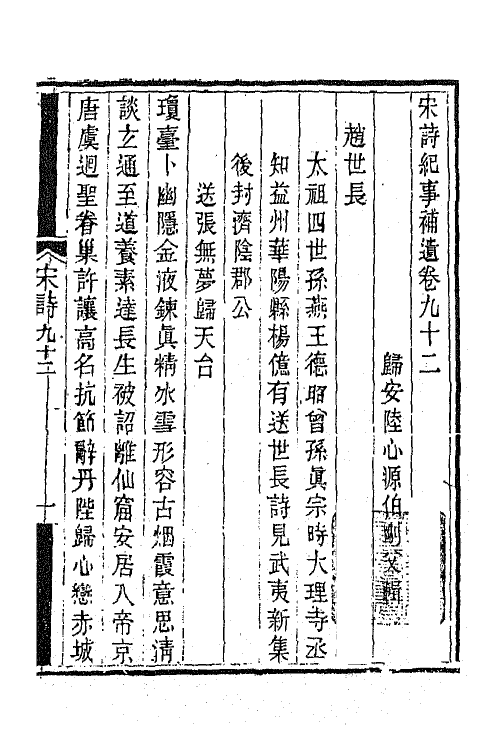 宋詩紀事補遺卷九十二
歸安陸心源伯剛父輯
趙世長
太祖四世孫燕王德昭曾孫眞宗時大理寺丞
知益州華陽縣楊億有送世長詩見武夷新集
後封濟陰郡公
送張無夢歸天台
瓊臺卜幽隱金液鍊眞精氷雪形容古烟霞意思淸
談玄通至道養素達長生被詔離仙窟安居入帝京
唐虞迴聖眷巢許讓高名抗節辭丹陛歸心戀赤城
宋詩九十二
一